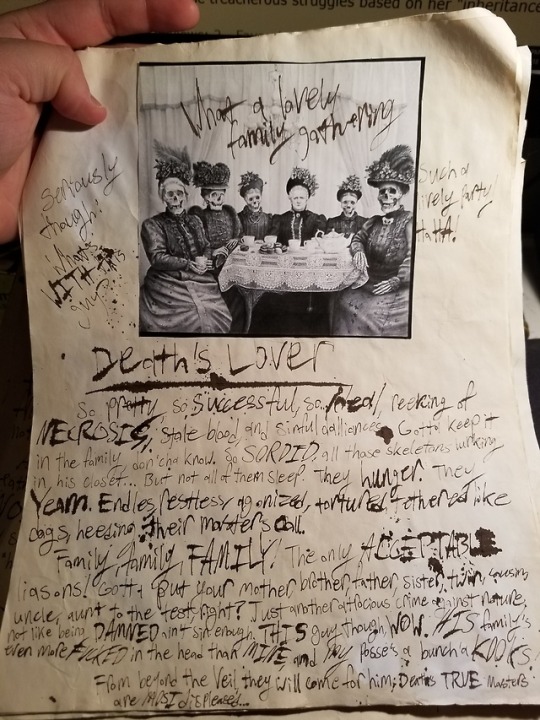 treacherous struggles based on her "inheritance
What a lovely
family gathering
Seriously
though!
What's
WITH THIS
guy?
Such a
lively party!
HaHA!
Death's Lover
So pretty, so successful, so... reeking of
NECROSIS, stale blood, and sinful dalliances. Gotta keep it
in the family, don'cha know. So SORDID, all those skeletons lurking
in his closet... But not all of them sleep. They hunger. They
Yearn. Endless, restless, agonized, tortured, tethered like
dogs, heeding their master's call.
Family, family, FAMILY! The only ACCEPTABLE
liasons! Gotta put your mother, brother, father, sister, twin, cousin,
uncle, aunt to the test, right? Just another atrocious crime against nature,
not like being DAMNED ain't sin enough. THIS guy though, WOW. HIS family's
even more FUCKED in the head than MINE, and my posse's a bunch a KOOKS!
From beyond the Veil they will come for him; Death's TRUE masters
are MOST displeased...